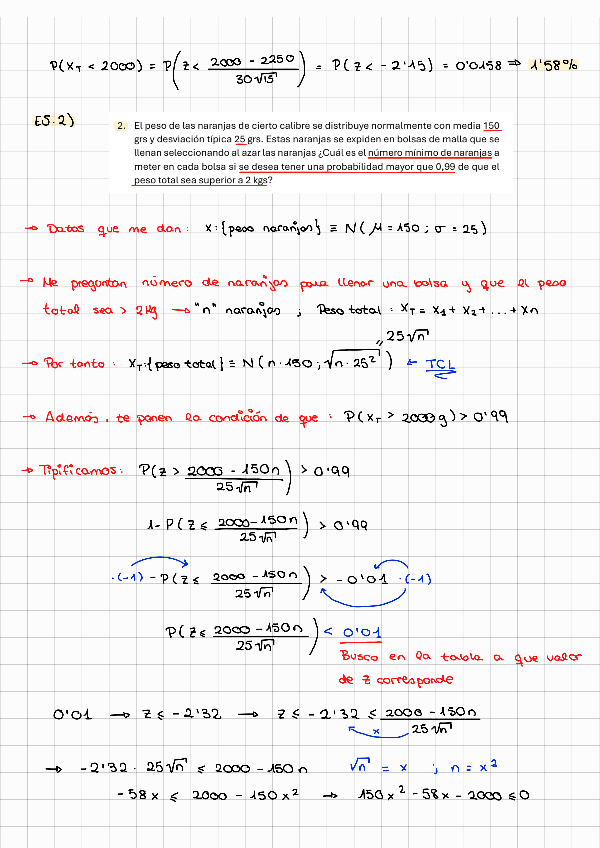 P(X_T < 2000) = P(Z < (2000 - 2250)/(30√15)) = P(Z < -2'15) = 0'0158 ⇒ 1'58%
EJ.2)
2. El peso de las naranjas de cierto calibre se distribuye normalmente con media 150
grs y desviación típica 25 grs. Estas naranjas se expiden en bolsas de malla que se
llenan seleccionando al azar las naranjas ¿Cuál es el número mínimo de naranjas a
meter en cada bolsa si se desea tener una probabilidad mayor que 0,99 de que el
peso total sea superior a 2 kgs?
→ Datos que me dan: X:{peso naranjas} ≡ N(μ=150; σ=25)
→ Me preguntan número de naranjas para llenar una bolsa y que el peso
total sea > 2Kg → "n" naranjas ; Peso total: X_T = X_1 + X_2 + ... + X_n
" 25√n
→ Por tanto: X_T:{peso total} ≡ N(n·150; √(n·25²)) ← TCL
→ Además, te ponen la condición de que: P(X_T > 2000g) > 0'99
→ Tipificamos: P(Z > (2000 - 150n)/(25√n)) > 0'99
1 - P(Z ≤ (2000 - 150n)/(25√n)) > 0'99
·(-1) - P(Z ≤ (2000 - 150n)/(25√n)) > -0'01 ·(-1)
P(Z ≤ (2000 - 150n)/(25√n)) < 0'01
Busco en la tabla a que valor
de Z corresponde
0'01 → Z ≤ -2'32 → Z ≤ -2'32 ≤ (2000 - 150n)/(25√n)
x
→ -2'32 · 25√n ≤ 2000 - 150n √n = x ; n = x²
-58x ≤ 2000 - 150x² → 150x² - 58x - 2000 ≤ 0